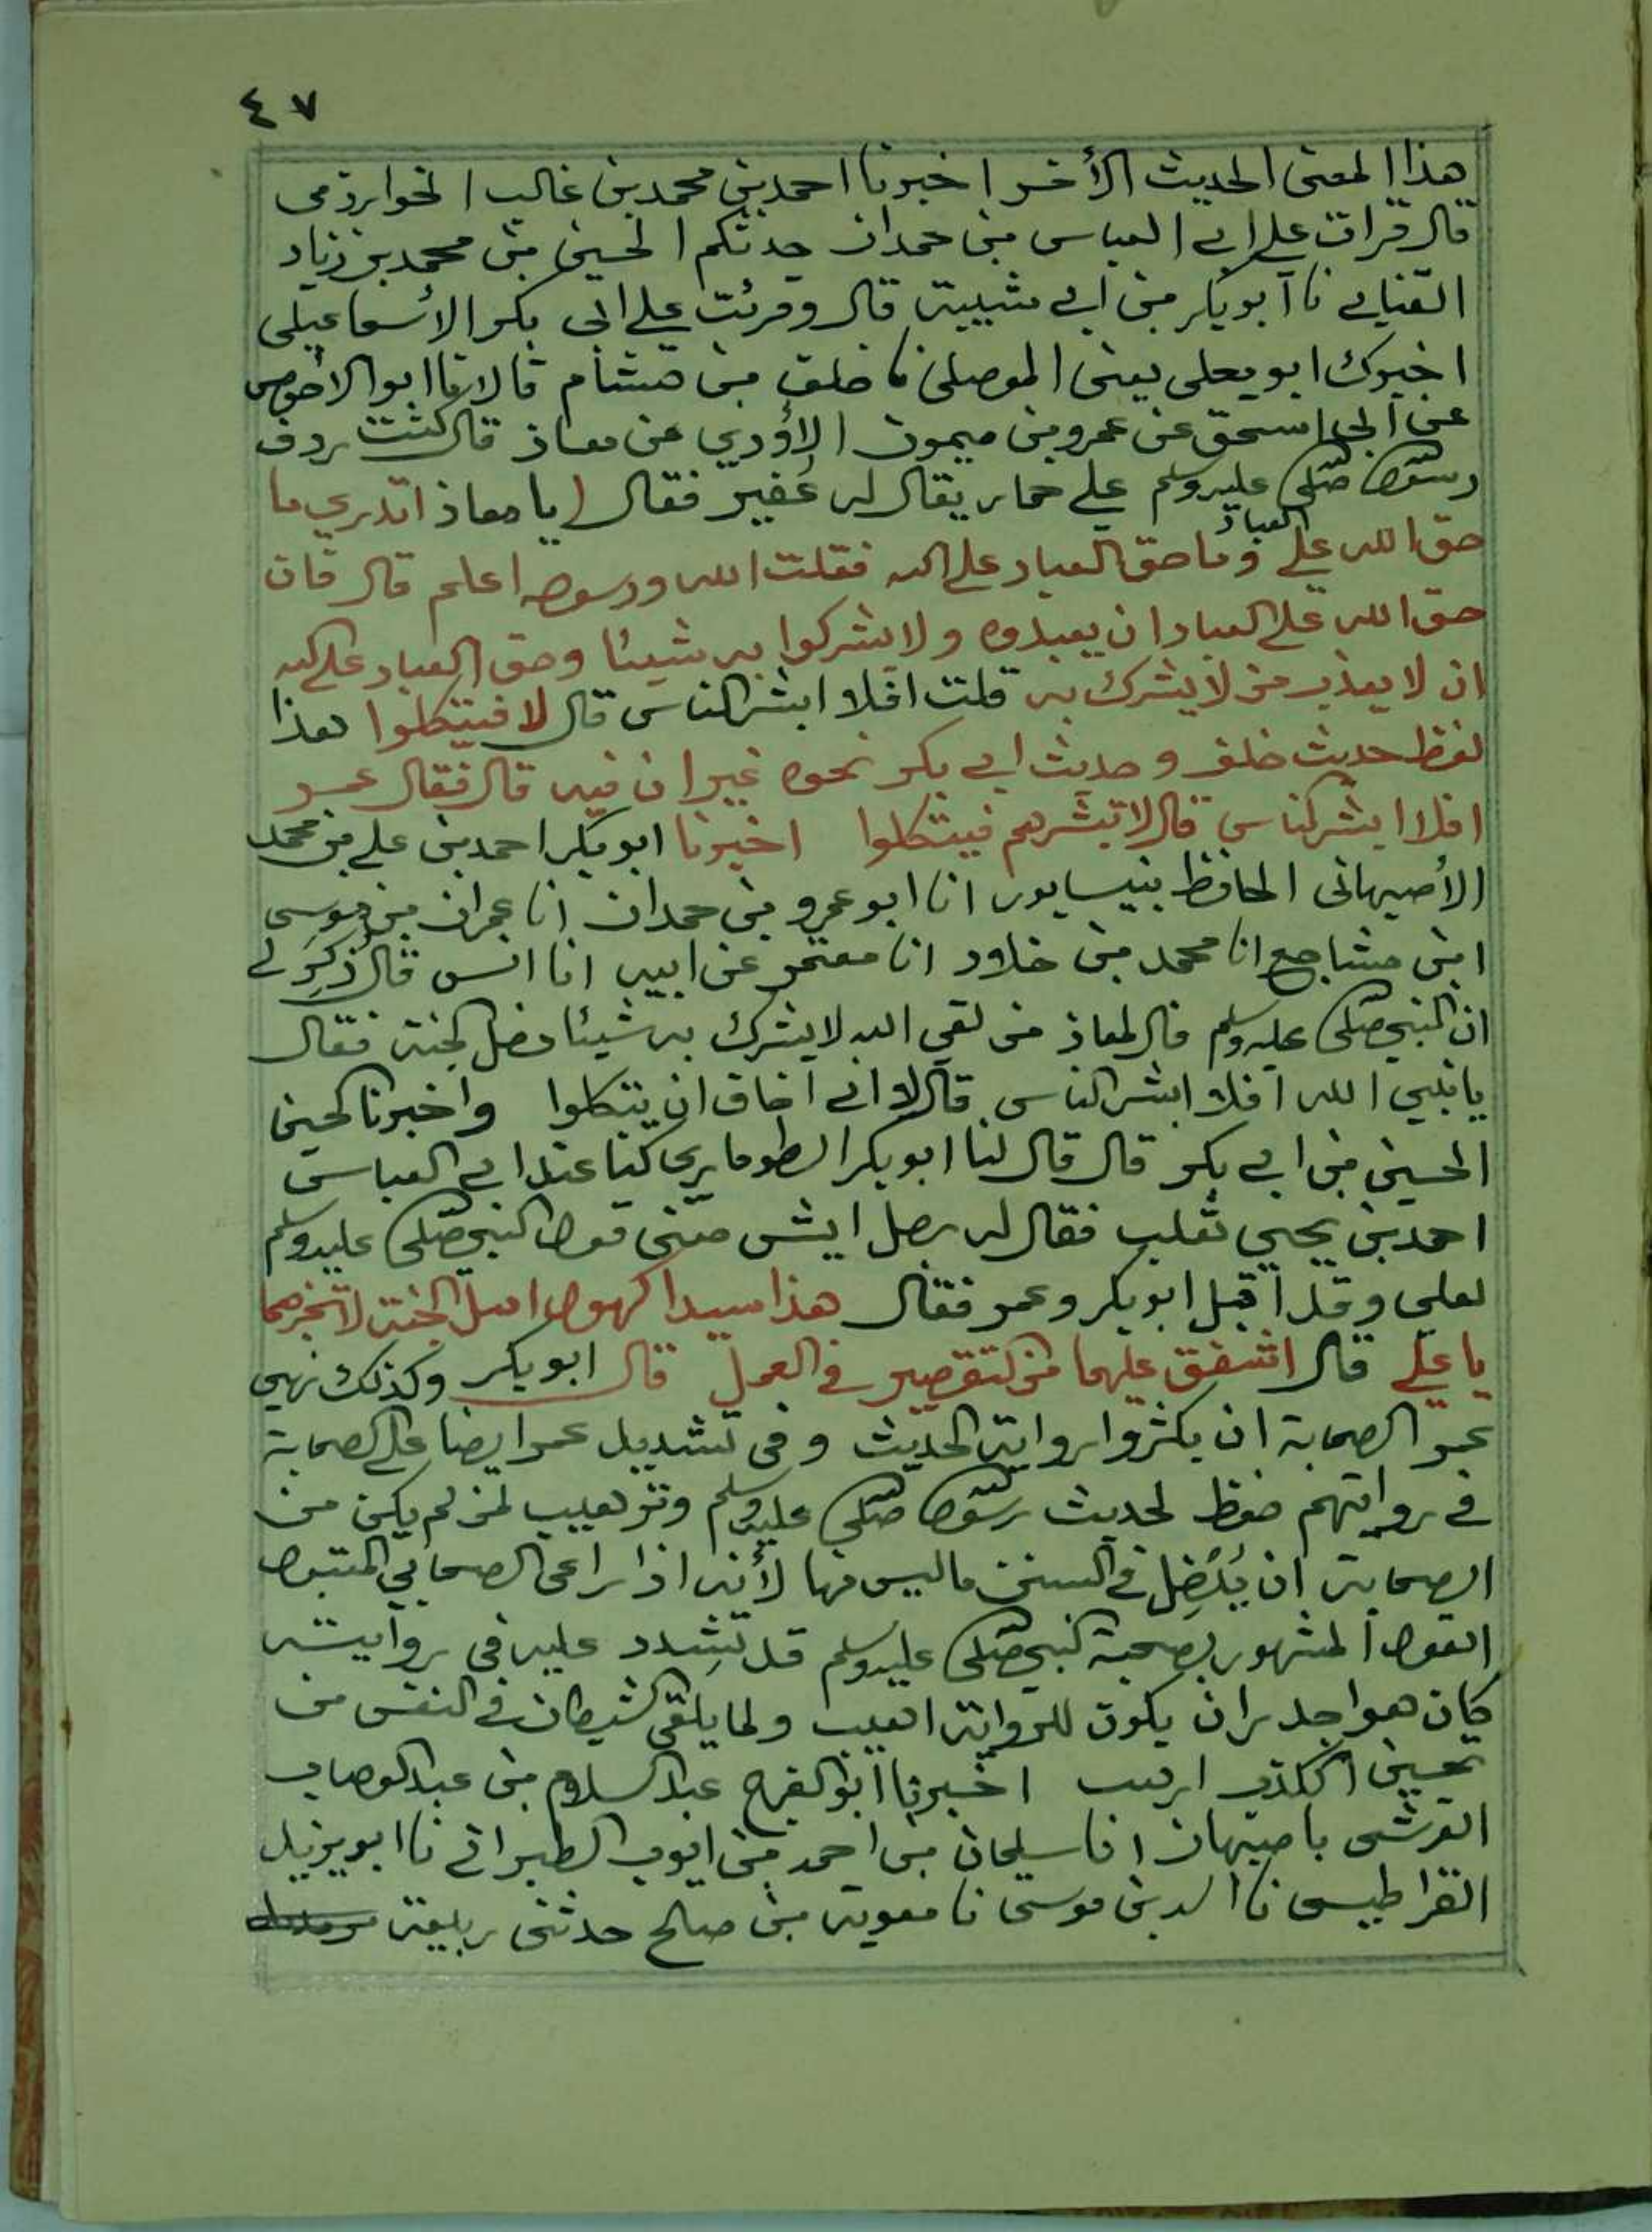 ٤٧
هذا المعنى الحديث الأخر اخبرنا احمد بن محمد بن غالب الخوارزمي
قال قرات على ابي العباس بن حمدان حدثكم الحسين بن محمد بن زياد
القبابي نا ابو بكر بن ابي شيبة قال وقرئت على ابي بكر الأسماعيلي
اخبرك ابو يعلى يعني الموصلي نا خلف بن هشام قالا نا ابو الاحوص
عن ابي اسحق عن عمرو بن ميمون الأودي عن معاذ قال كنت ردف
رسول الله صلى الله عليه وسلم على حمار يقال له عُفير فقال يا معاذ اتدري ما
حق الله على العباد وما حق العباد على الله فقلت الله ورسوله اعلم قال فان
حق الله على العباد ان يعبدوه ولا يشركوا به شيئا وحق العباد على الله
ان لا يعذب من لا يشرك به قلت افلا ابشر الناس قال لا فيتكلوا هذا
لفظ حديث خلف وحديث ابي بكر نحوه غير ان فيه قال فقال عمر
افلا ابشر الناس قال لا تبشرهم فيتكلوا اخبرنا ابو بكر احمد بن علي بن محمد
الأصبهاني الحافظ بنيسابور انا ابو عمرو بن حمدان انا عمران بن موسى
ابن مشاجع انا محمد بن خلاد انا معتمر عن ابيه انا انس قال ذُكِرَ لي
ان النبي صلى الله عليه وسلم قال لمعاذ من لقي الله لا يشرك به شيئا دخل الجنة فقال
يا نبي الله افلا ابشر الناس قال لا اني اخاف ان يتكلوا واخبرنا الحسن
الحسين بن ابي بكر قال قال لنا ابو بكر الطوماري كنا عند ابي العباس
احمد بن يحيي ثعلب فقال له رجل ايش معنى قول النبي صلى الله عليه وسلم
لعلي وقد اقبل ابو بكر وعمر فقال هذا سيدا كهول اهل الجنة لا تخبرهما
يا علي قال اشفق عليهما من التقصير في العمل قال ابو بكر وكذلك نهي
عمر الصحابة ان يكثروا رواية الحديث وفي تشديد عمر ايضا على الصحابة
في روايتهم حفظ لحديث رسول الله صلى الله عليه وسلم وترهيب لمن لم يكن من
الصحابة ان يُدْخِل في السنن ما ليس منها لأنه اذا راى الصحابي المقبول
القول المشهور بصحبة النبي صلى الله عليه وسلم قد تشدد عليه في روايته
كان هو اجدر ان يكون للرواية اهيب ولما يلقى الشيطان في النفس من
تحسين الكذب ارهب اخبرنا ابو الفرج عبد السلام بن عبد الوهاب
القرشي باصبهان انا سليمان بن احمد بن ايوب الطبراني نا ابو يزيد
القراطيسي نا اسد بن موسى نا معوية بن صالح حدثني ربيعة